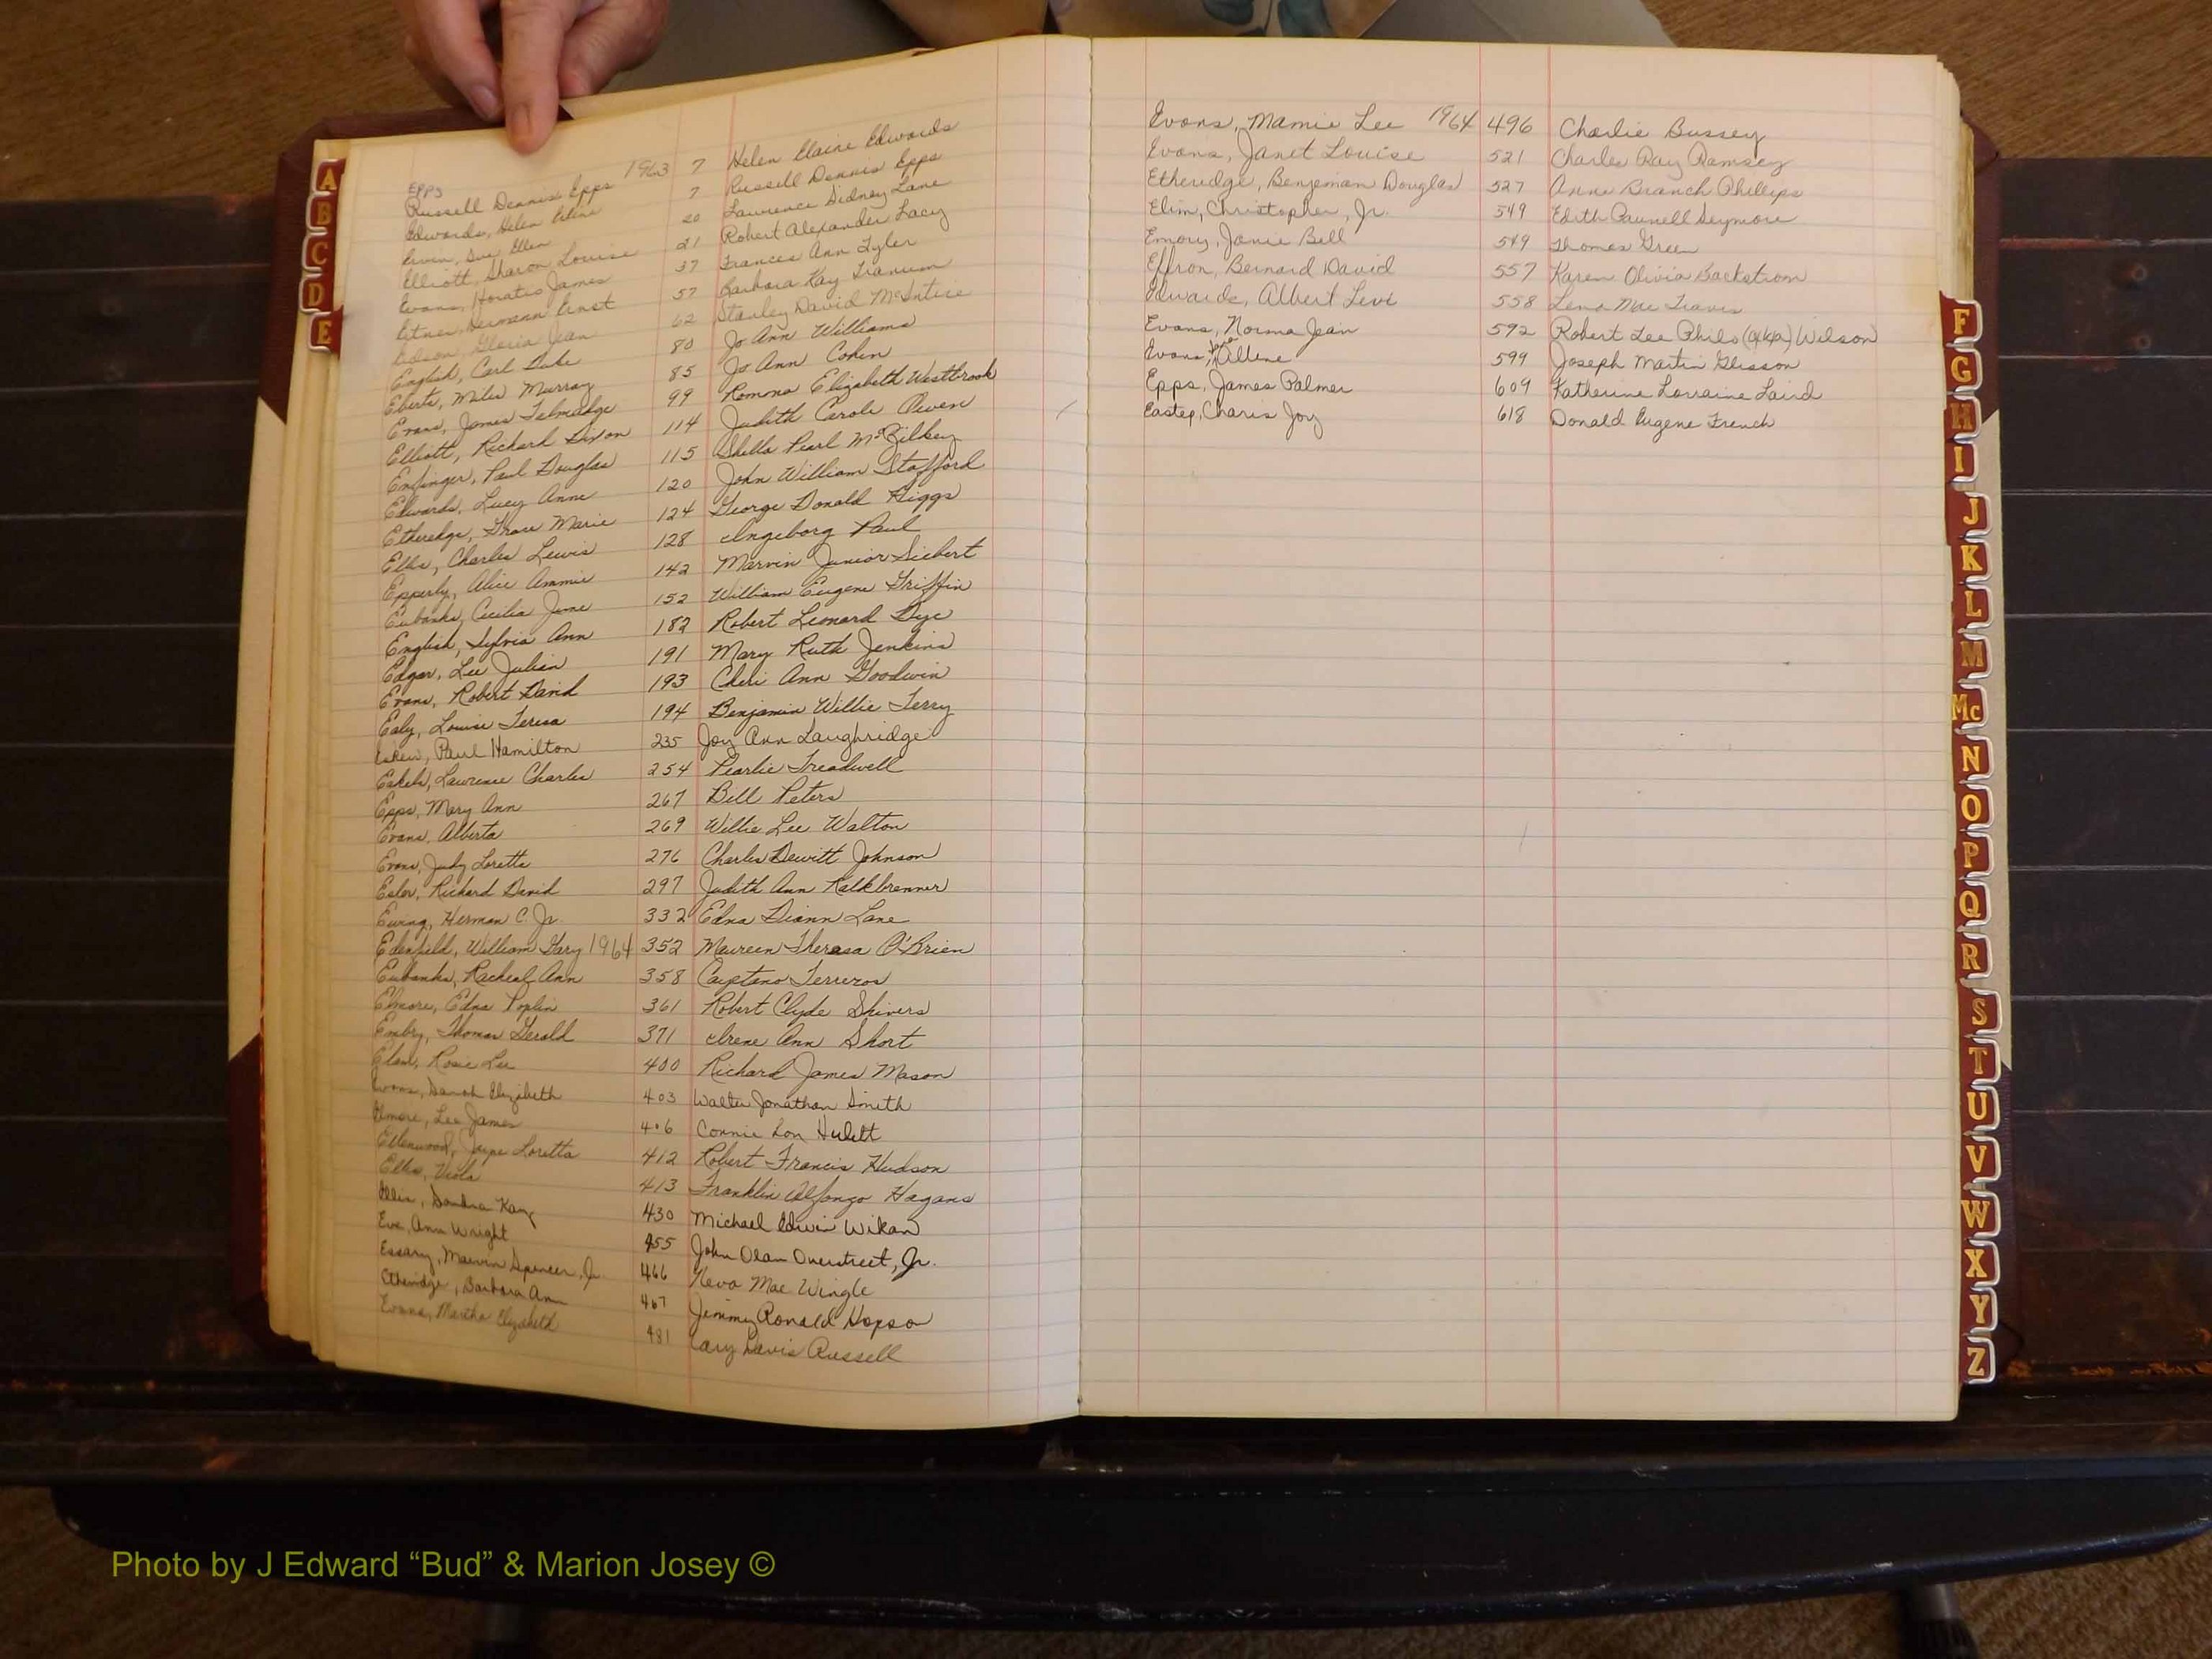 EPPS
Russell Dennis Epps 1963 7 Helen Elaine Edwards
Edwards, Helen Elaine 7 Russell Dennis Epps
Erwin, Sue Ellen 20 Lawrence Sidney Lane
Elliott, Sharon Louise 21 Robert Alexander Lacy
Evans, Horatio James 37 Frances Ann Tyler
Eitner, Herman Ernst 57 Barbara Kay Franum
Edson, Gloria Jean 62 Stanley David McIntire
English, Carl Duke 80 Jo Ann Williams
Eberts, Miles Murray 85 Jo Ann Cohen
Evans, James Talmadge 99 Romona Elizabeth Westbrook
Elliott, Richard Dixon 114 Judith Carole Owen
Enfinger, Paul Douglas 115 Shella Pearl McGilkey
Edwards, Lucy Anne 120 John William Stafford
Etheredge, Grace Marie 124 George Donald Riggs
Ellis, Charles Lewis 128 Ingeborg Paul
Epperly, Alice Ammie 142 Marvin Junior Siebert
Eubanks, Cecilia June 152 William Eugene Griffin
English, Sylvia Ann 182 Robert Leonard Dye
Edgar, Lee Julian 191 Mary Ruth Jenkins
Evans, Robert David 193 Cheri Ann Goodwin
Ealy, Louise Teresa 194 Benjamin Willie Terry
Eskew, Paul Hamilton 235 Joy Ann Laughridge
Eskels, Lawrence Charles 254 Pearlie Treadwell
Epps, Mary Ann 267 Bill Peters
Evans, Alberta 269 Willie Lee Walton
Evans, Judy Loretta 276 Charles Dewitt Johnson
Esler, Richard David 297 Judith Ann Kalkbrenner
Ewing, Herman C. Jr. 332 Edna Diann Lane
Edenfield, William Gary 1964 352 Maureen Theresa O'Brien
Eubanks, Racheal Ann 358 Cayetano Terreros
Elmore, Edna Poplin 361 Robert Clyde Shivers
Embry, Thomas Gerald 371 Irene Ann Short
Elam, Rosie Lee 400 Richard James Mason
Evans, Sarah Elizabeth 403 Walter Jonathan Smith
Elmore, Lee James 406 Connie Lou Hulett
Ellenwood, Joyce Loretta 412 Robert Francis Hudson
Ellis, Viola 413 Franklin Alfonzo Hagans
Ellis, Sandra Kay 430 Michael Edwin Wikan
Eve, Ann Wright 455 John Olan Overstreet, Jr.
Essary, Marvin Spencer, Jr. 466 Neva Mae Wingle
Etheridge, Barbara Ann 467 Jimmy Ronald Hopson
Evans, Martha Elizabeth 481 Cary Davis Russell
Evans, Mamie Lee 1964 496 Charlie Bussey
Evans, Janet Louise 521 Charles Ray Ramsey
Etheredge, Benjeman Douglas 527 Anne Branch Phillips
Elim, Christopher, Jr. 549 Edith Seymore
Emory, Janie Bell 549 Thomas Green
Effron, Bernard David 557 Karen Olivia Backstrom
Edwards, Albert Levi 558 Lena Mae Travis
Evans, Norma Jean 592 Robert Lee Philo (aka) Wilson
Evans, Allene 599 Joseph Martin Glisson
Epps, James Palmer 609 Katherine Lorraine Laird
Eastep, Charis Joy 618 Donald Eugene French
A
B
C
D
E
F
G
H
I
J
K
L
M
Mc
N
O
P
Q
R
S
T
U
V
W
X
Y
Z
Photo by J Edward “Bud” & Marion Josey ©